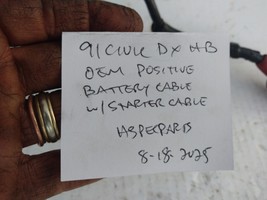 91 CIVIC DX HB
OEM POSITIVE
BATTERY CABLE
W/STARTER CABLE
HSPECPARTS
8-18-2025